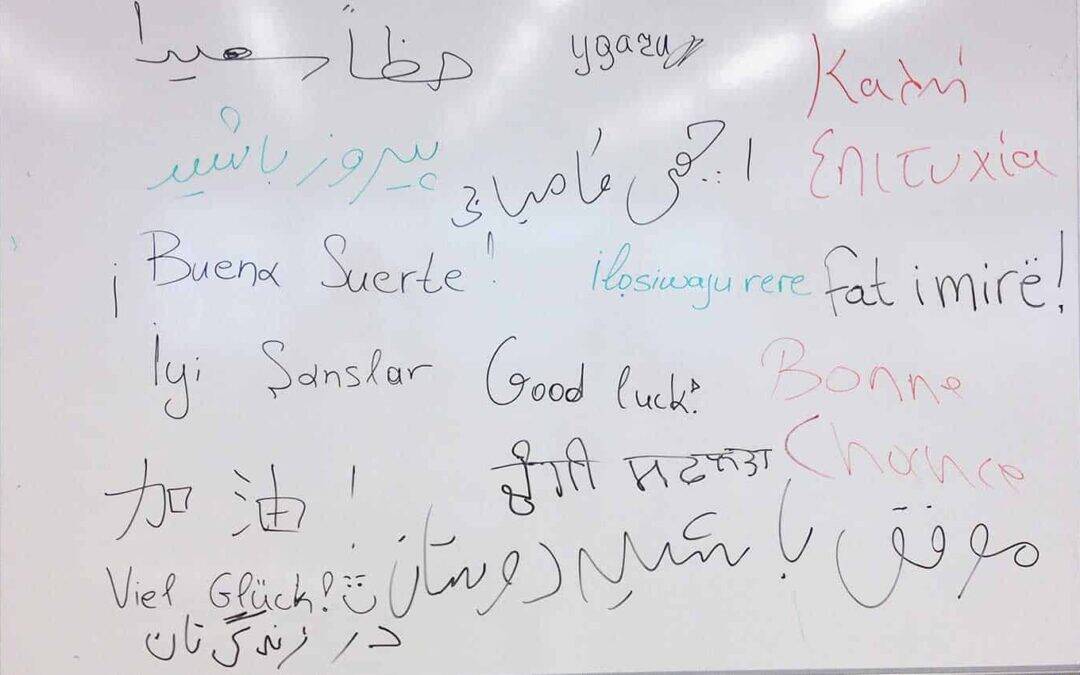 حظاً سعيدا
удачи
Καλή
Επιτυχία
پیروز باشید
اچھی کامیابی
¡Buena Suerte!
ilọsiwaju rere
fat i mirë!
İyi Şanslar
Good luck!
Bonne
Chance
ਚੰਗੀ
加油!
موفق باشید دوستان
Viel Glück!
در زندگی تان